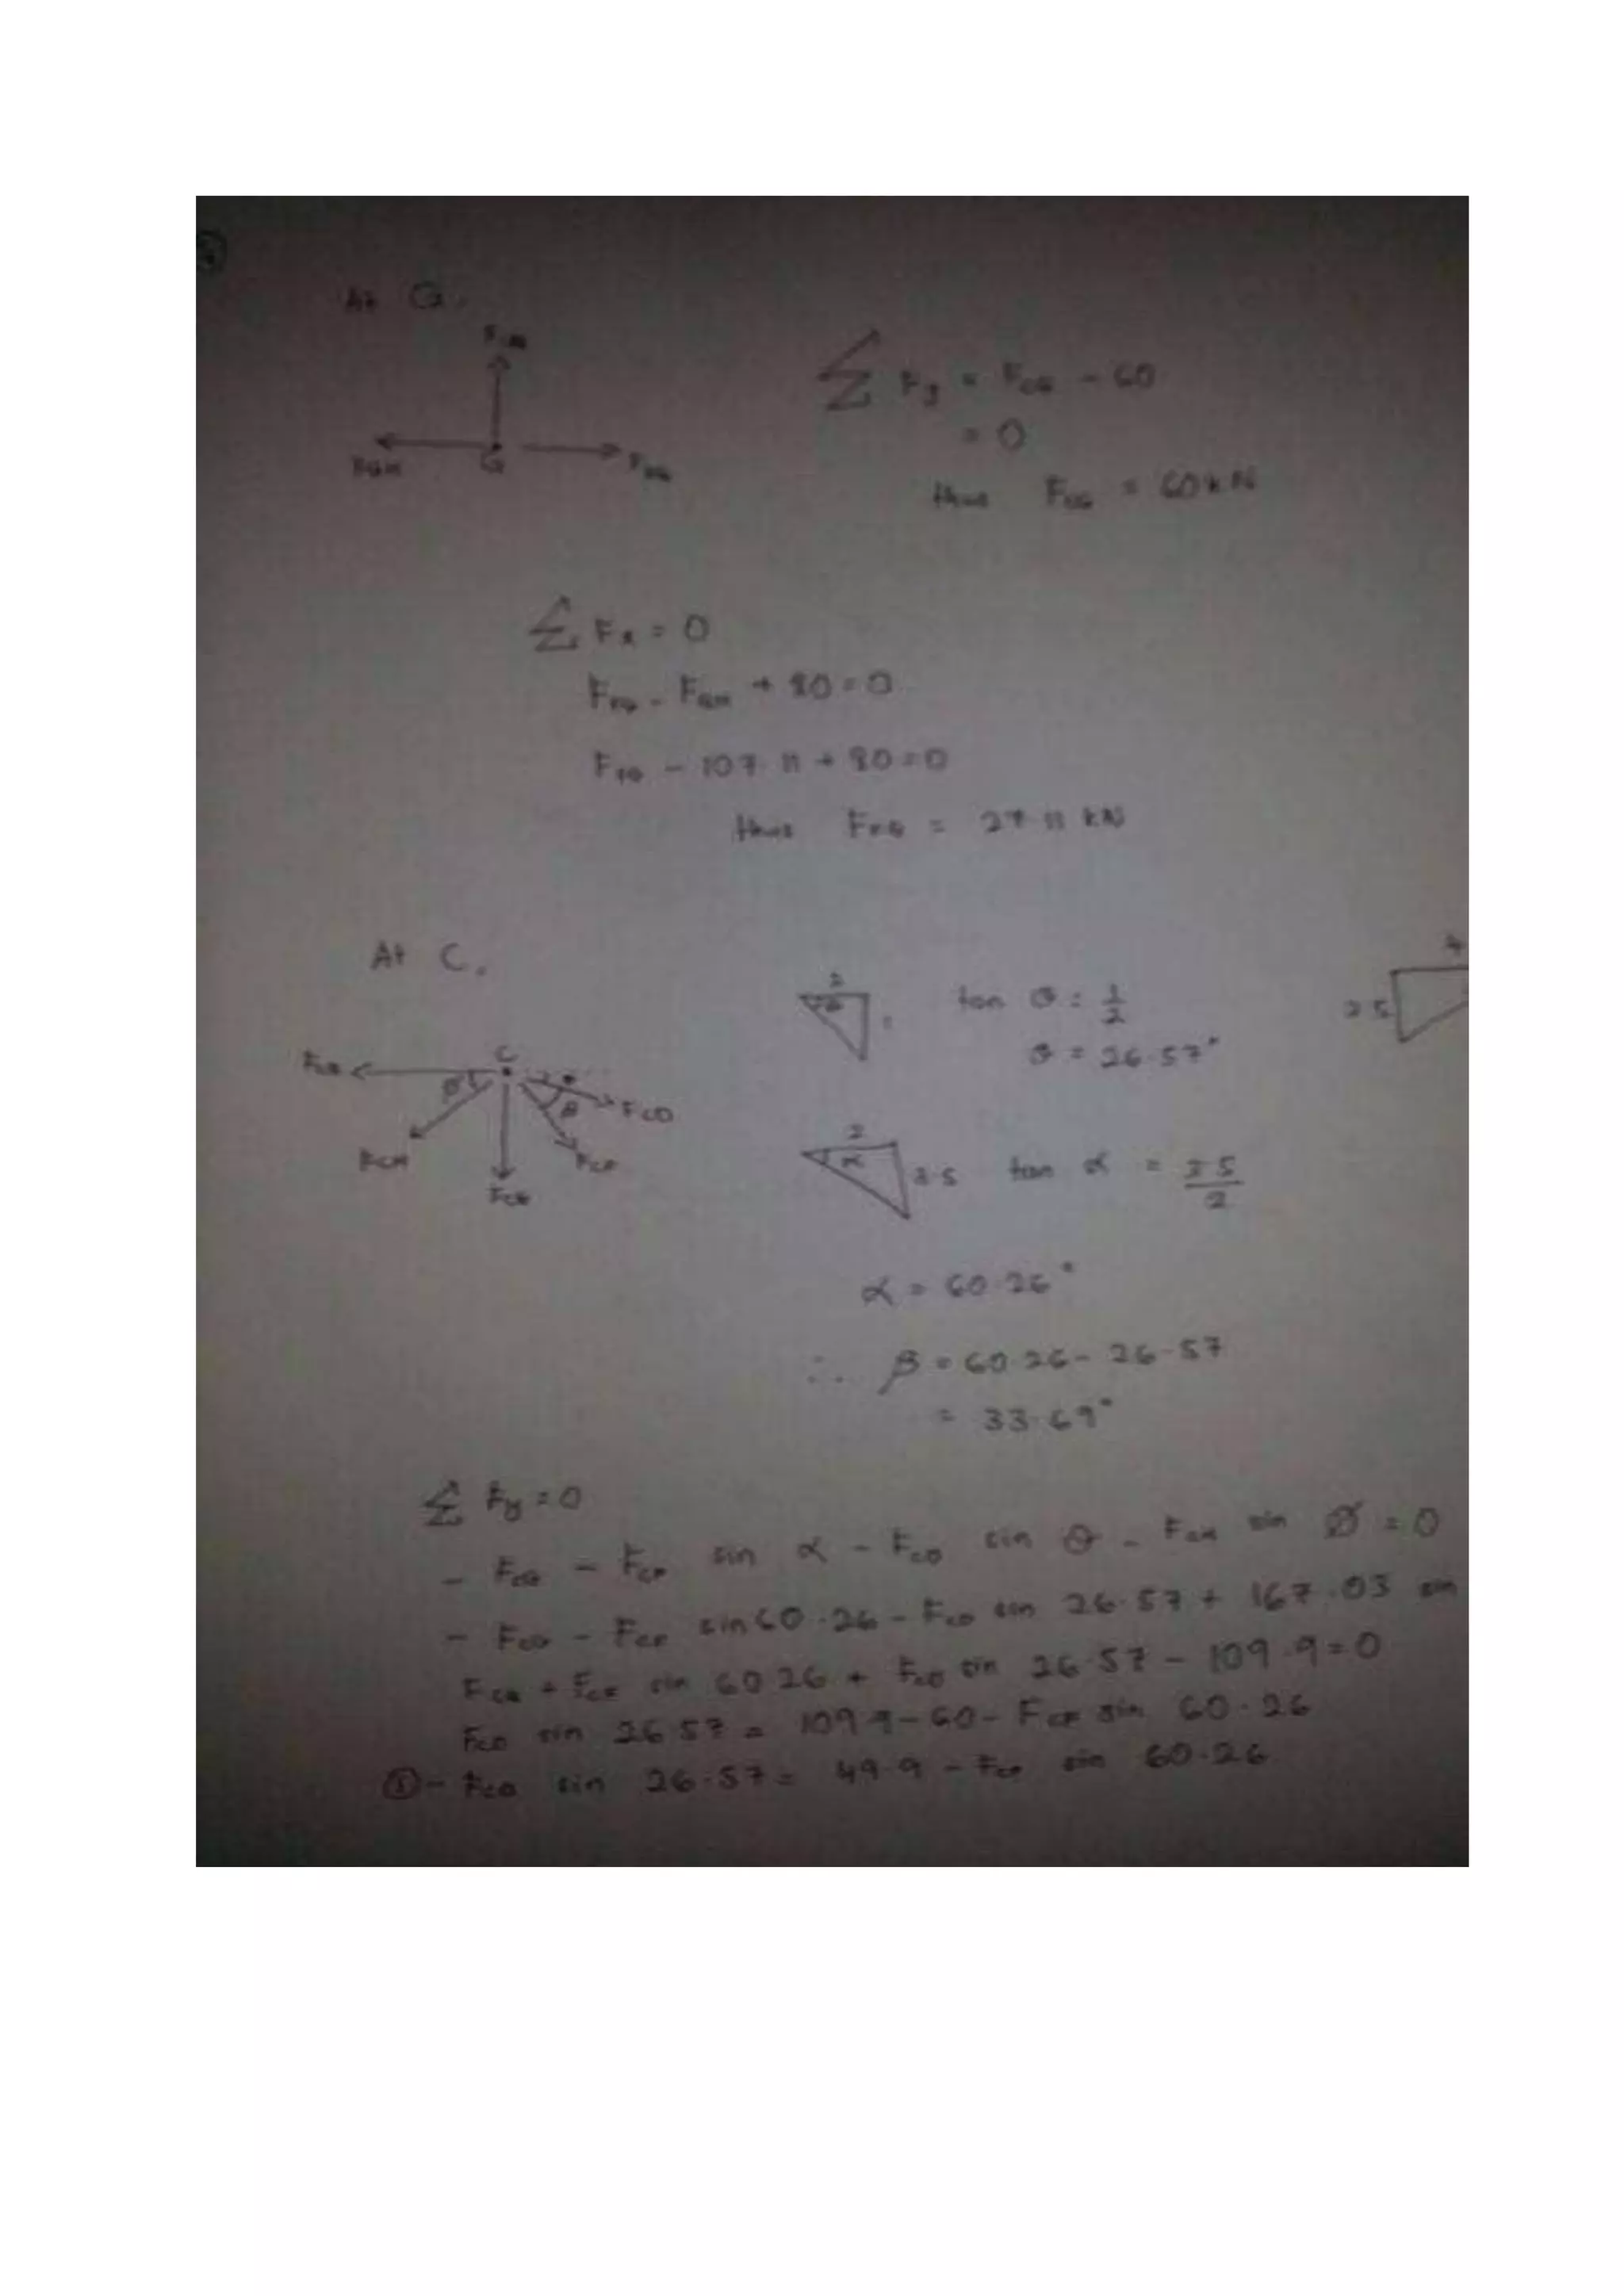 At G.
F_CG
F_GH G F_FG
∑ F_y = F_CG - 60
= 0
thus F_CG = 60 kN
∑ F_x = 0
F_FG - F_GH + 80 = 0
F_FG - 107.11 + 80 = 0
thus F_FG = 27.11 kN
At C.
F_CB C
Ø θ
β F_CD
F_CH F_CF
F_CG
2
θ 1
tan θ = 1/2
θ = 26.57°
4
3.5
2
α 3.5
tan α = 3.5/2
α = 60.26°
∴ β = 60.26 - 26.57
= 33.69°
∑ F_y = 0
- F_CG - F_CF sin α - F_CD sin θ - F_CH sin Ø = 0
- F_CG - F_CF sin 60.26 - F_CD sin 26.57 + 167.03 sin
F_CG + F_CF sin 60.26 + F_CD sin 26.57 - 109.9 = 0
F_CD sin 26.57 = 109.9 - 60 - F_CF sin 60.26
① - F_CD sin 26.57 = 49.9 - F_CF sin 60.26